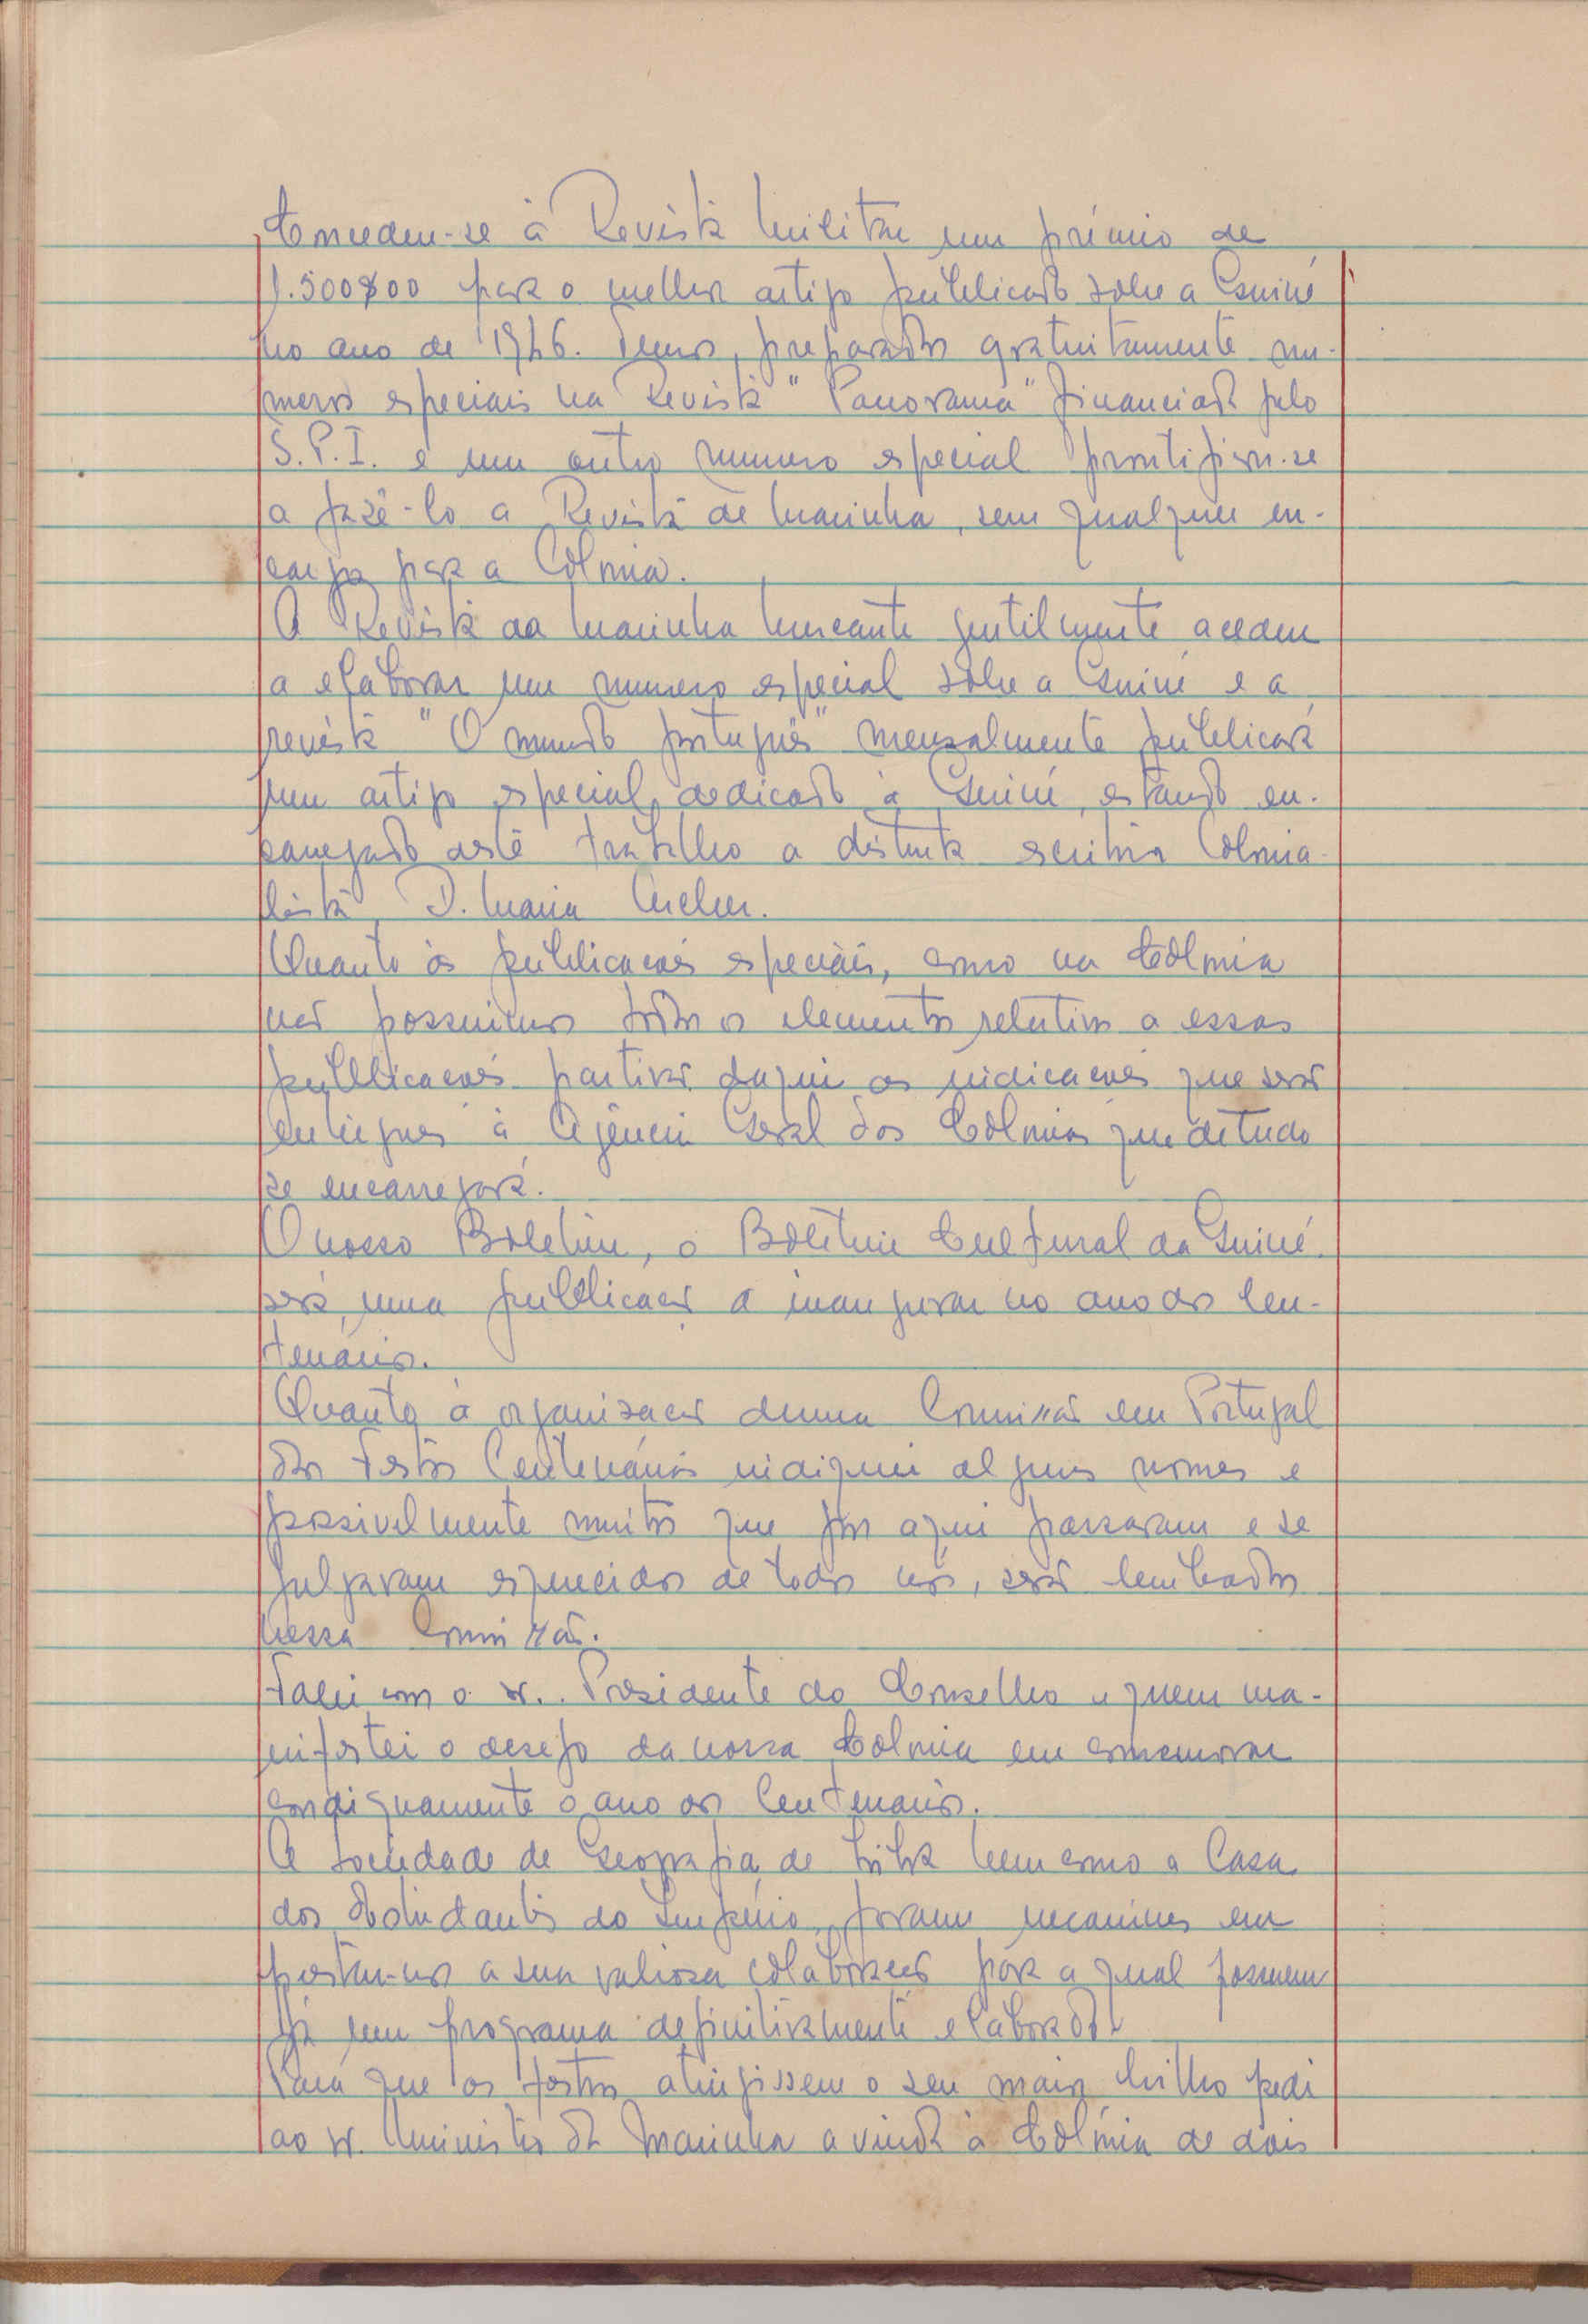 Concedeu-se à Revista Militar um prémio de
1.500$00 para o melhor artigo publicado sobre a Guiné
no ano de 1946. Temos, preparados gratuitamente nu-
meros especiais na Revista "Panorama" financiada pelo
S.P.I. e um outro numero especial prontificou-se
a fazê-lo a Revista de Marinha, sem qualquer en-
cargo para a Colonia.
A Revista da Marinha Mercante gentilmente acedeu
a elaborar um numero especial sobre a Guiné e a
revista "O mundo português" mensalmente publicará
um artigo especial, dedicado à Guiné, estando en-
carregado deste trabalho a distinta escritora Colonia-
lista, D. Maria Archer.
Quanto às publicações especiais, como na Colonia
não possuimos todos os elementos relativos a essas
publicações partirão daqui as indicações que serão
entregues à Agência Geral das Colonias que de tudo
se encarregará.
O nosso Boletim, o Boletim Cultural da Guiné
será, uma publicação a inaugurar no ano do Cen-
tenário.
Quanto à organisação duma Comissão em Portugal
das Festas Centenárias indiquei alguns nomes e
possivelmente muitos que por aqui passaram e se
julgavam esquecidos de todos nós, serão lembrados
nessa Comissão.
Falei com o sr. Presidente do Conselho a quem ma-
nifestei o desejo da nossa Colonia em comemorar
condignamente o ano do Centenario.
A Sociedade de Geografia de Lisboa bem como a Casa
dos Estudantes do Império, foram unanimes em
prestar-nos a sua valiosa colaboração para a qual possuem
já um programa definitivamente elaborado.
Para que as festas atingissem o seu maior brilho pedi
ao sr. Ministro da Marinha a vinda à Colónia de dois